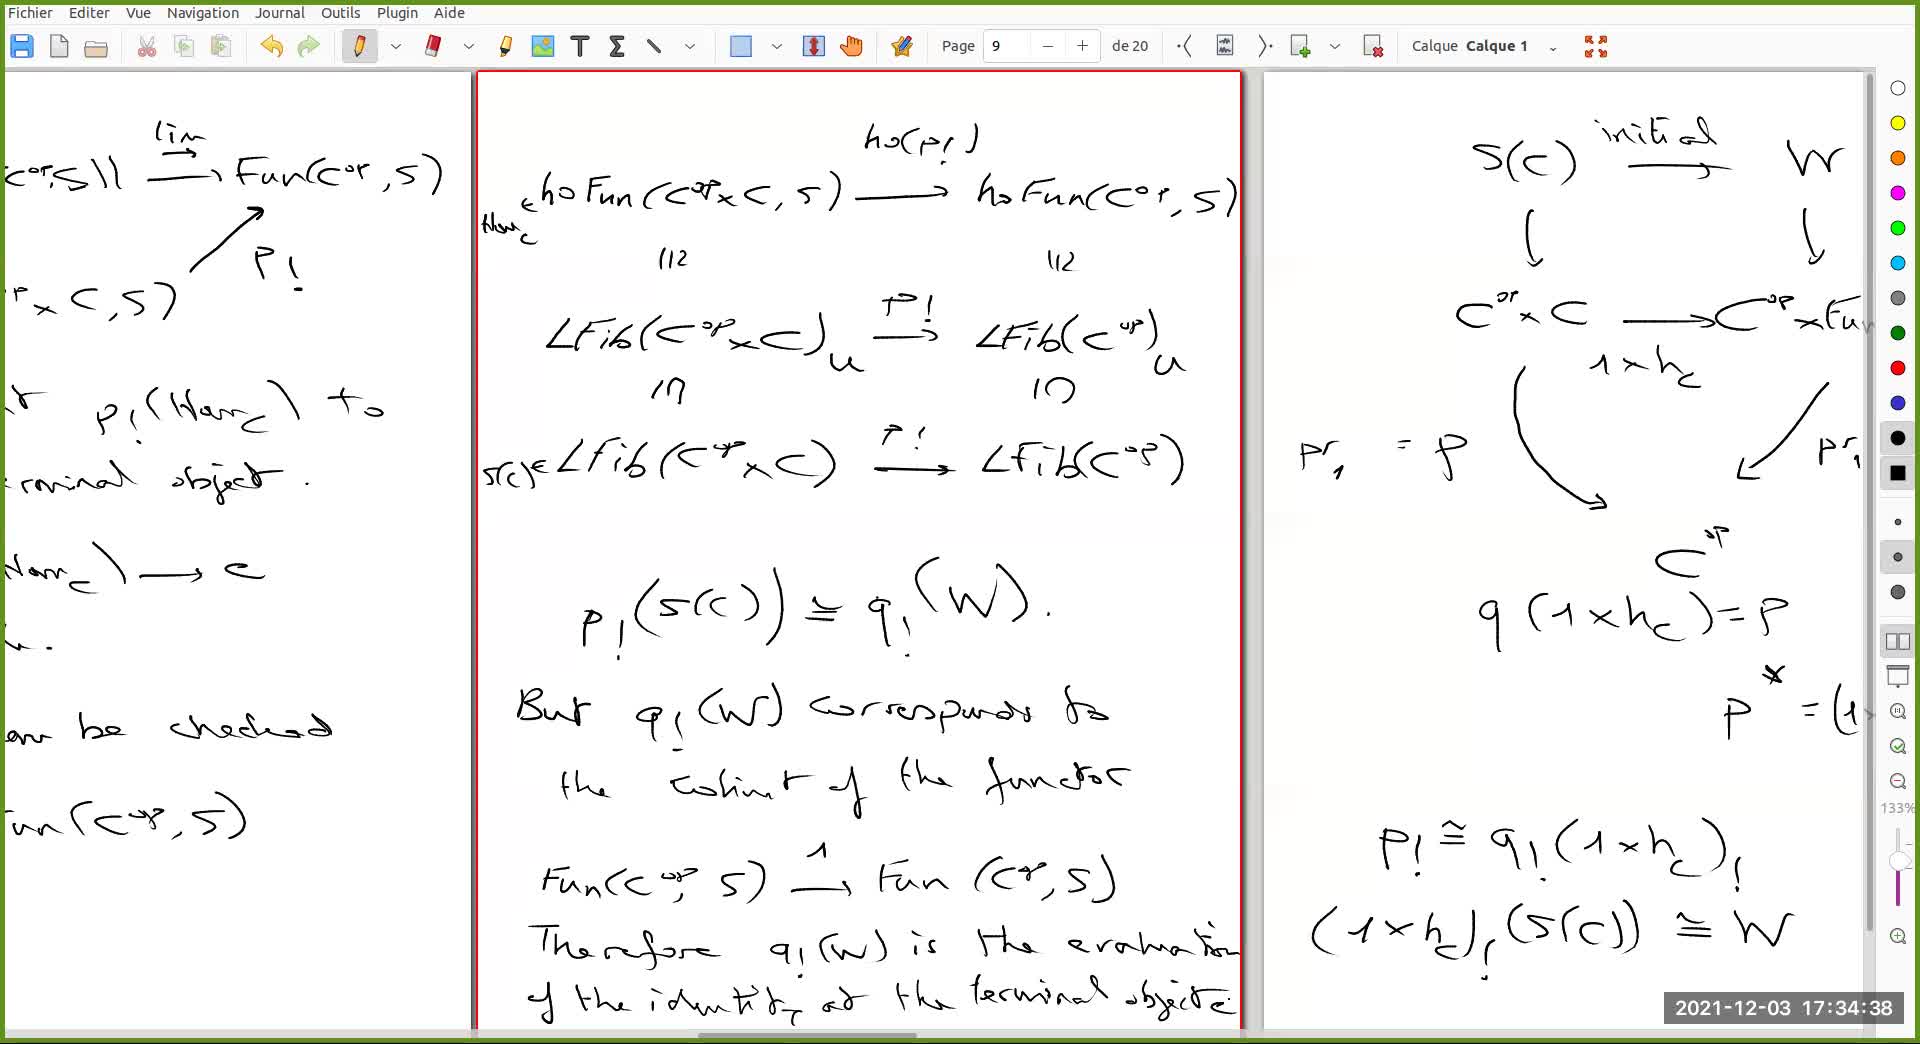 Fichier Editer Vue Navigation Journal Outils Plugin Aide
Page 9 de 20 Calque Calque 1
lim
C^op, S)) → Fun(C^op, S)
p!
^op × C, S)
p!(Hom_C) to
terminal object.
Hom_C) → e
can be checked
Fun(C^op, S)
ho(p!)
Hom_C ∈ ho Fun(C^op × C, S) → ho Fun(C^op, S)
LFib(C^op × C)_U →^{p!} LFib(C^op)_U
S(C) ∈ LFib(C^op × C) →^{p!} LFib(C^op)
p!(S(C)) ≅ q!(W).
But q!(W) corresponds to
the colimit of the functor
Fun(C^op, S) →^1 Fun(C^op, S)
Therefore q!(W) is the evaluation
of the identity at the terminal object e
S(C) →^{initial} W
C^op × C → C^op × Fun
1 × h_C
pr_1 = p
pr_1
C^op
q(1 × h_C) = p
p^* = (1 ×
p! ≅ q!(1 × h_C)!
(1 × h_C)!(S(C)) ≅ W
133%
2021-12-03 17:34:38